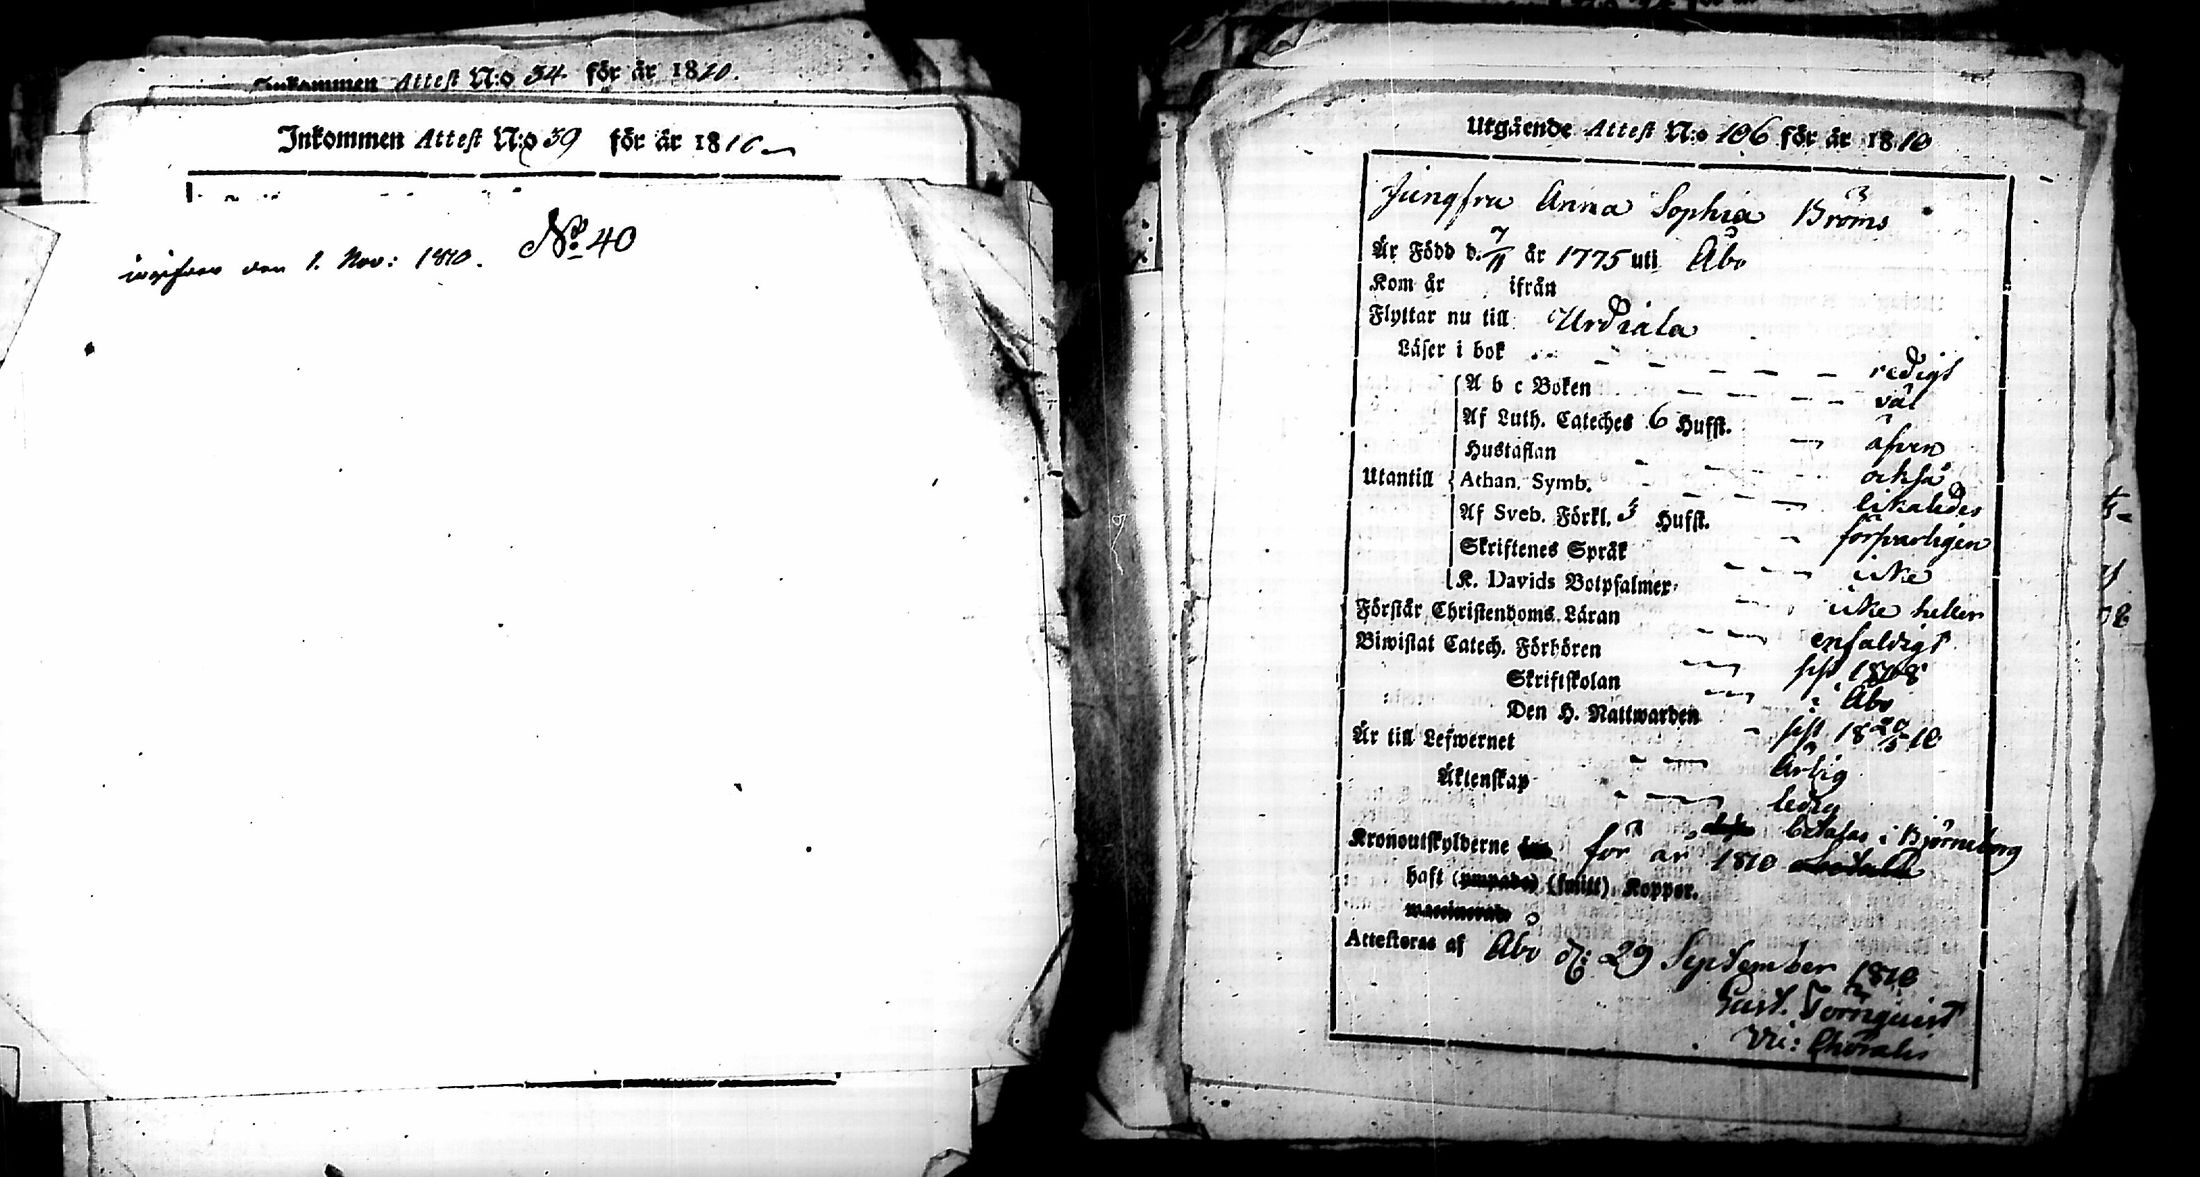 Inkommen Attest N:o 54 för år 1810.
Inkommen Attest N:o 39 för år 1810
No 40
den 1. Nov: 1810.
Utgående Attest N:o 106 för år 1810
Jungfru Anna Sophia Bröms
Är Född d. 7/11 år 1775 uti Åbo
Kom år ifrån
Flyttar nu till Urdiala
Läser i bok - - - - - redigt
A b c Boken - - - - väl
Af Luth. Cateches 6 Hufst. - äfven
Hustaflan - - - - också
Utantill Athan. Symb. - - - likaledes
Af Sveb. Förkl. 5 Hufst. - försvarligen
Skriftenes Språk - - - icke
K. Davids Botpsalmer - - icke heller
Förstår Christendoms Läran - - enfaldigt
Biwistat Catech. Förhören - - sist 1808
Skriftskolan - - i Åbo
Den H. Nattwarden - sist 18 20/5 10
Är till Lefwernet - - Ärbig
Äktenskap - - - ledig
betalas i Björneborg
Kronoutskylderne för år 1810
haft (ympade) (smitt) Koppor.
waccinerade
Attesteras af Åbo d: 29 September 1810
Gust. Törnquist
Vic: Choralis